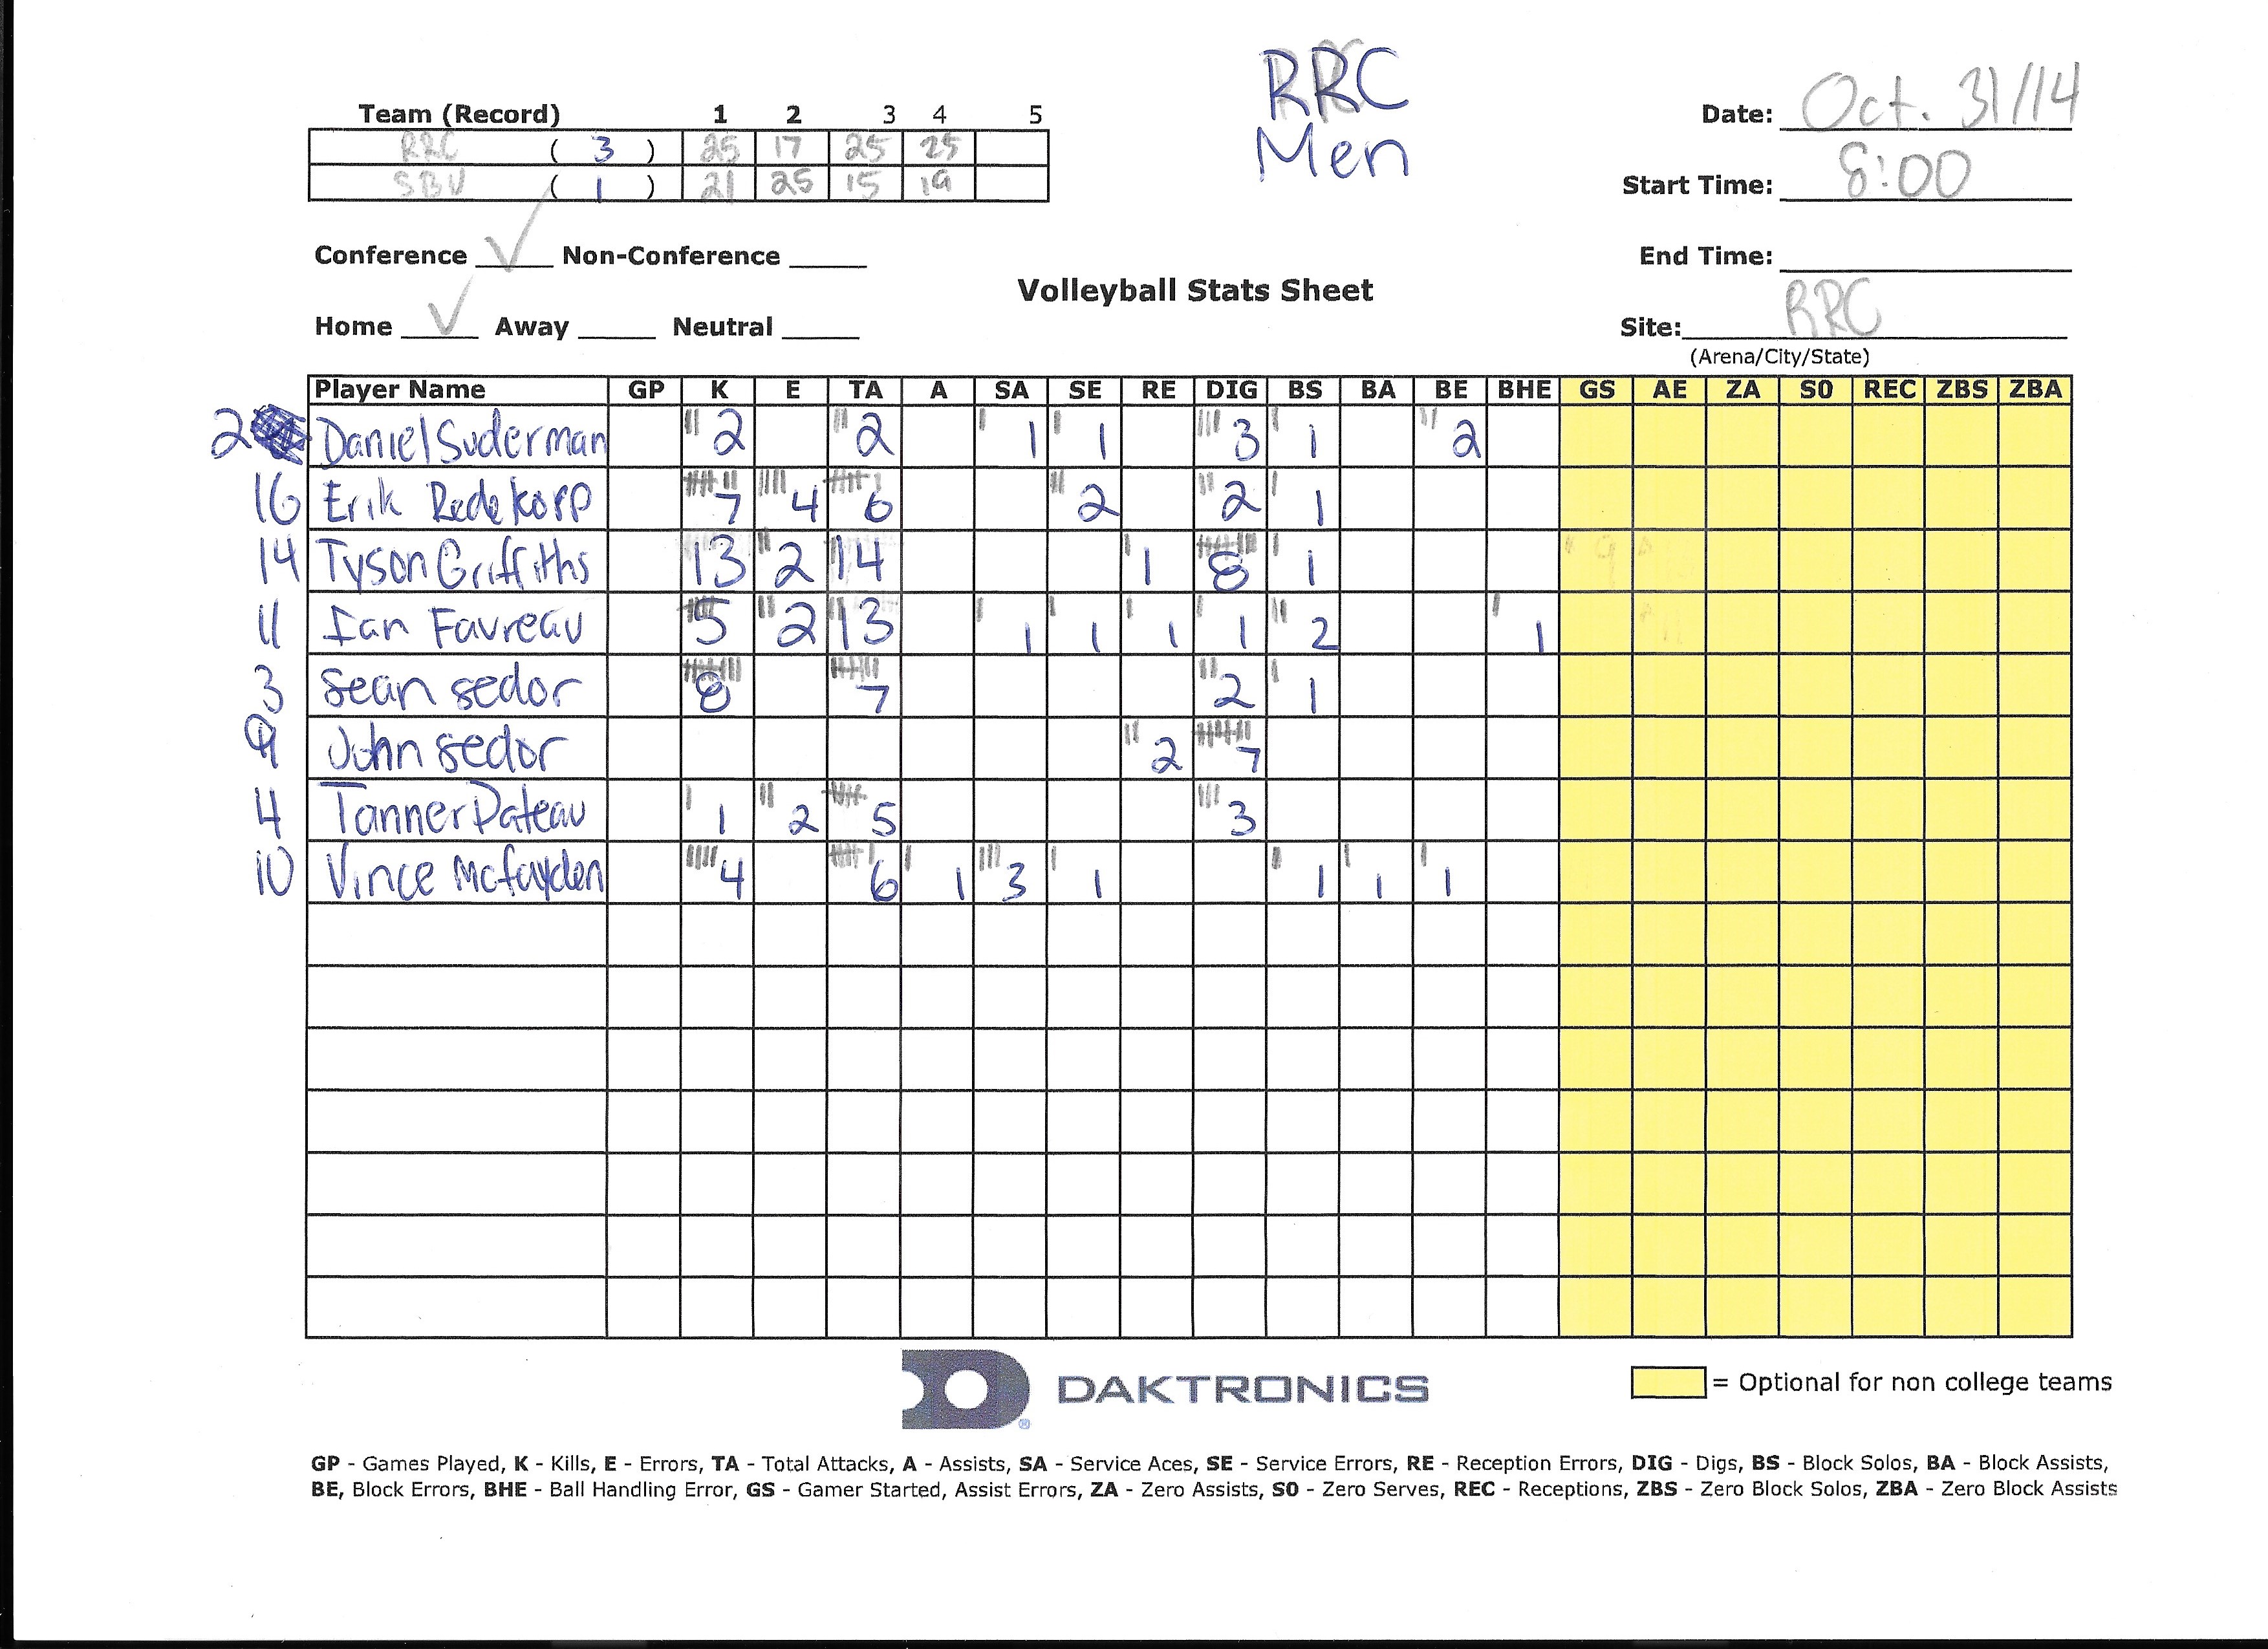 RRC
Men
Team (Record) 1 2 3 4 5
RRC ( 3 ) 25 17 25 25
SBU ( 1 ) 21 25 15 19
Date: Oct. 31/14
Start Time: 8:00
Conference ✓ Non-Conference
End Time:
Volleyball Stats Sheet
Home ✓ Away Neutral
Site: RRC
(Arena/City/State)
Player Name GP K E TA A SA SE RE DIG BS BA BE BHE GS AE ZA S0 REC ZBS ZBA
2 Daniel Suderman 2 2 1 1 3 1 2
16 Erik Redekorp 7 4 6 2 2 1
14 Tyson Griffiths 13 2 14 1 8 1
11 Ian Favreau 5 2 13 1 1 1 1 2 1
3 Sean sedor 8 7 2 1
9 John sedor 2 7
4 Tanner Pateau 1 2 5 3
10 Vince Mcfayden 4 6 1 3 1 1 1 1
DAKTRONICS
= Optional for non college teams
GP - Games Played, K - Kills, E - Errors, TA - Total Attacks, A - Assists, SA - Service Aces, SE - Service Errors, RE - Reception Errors, DIG - Digs, BS - Block Solos, BA - Block Assists,
BE, Block Errors, BHE - Ball Handling Error, GS - Gamer Started, Assist Errors, ZA - Zero Assists, S0 - Zero Serves, REC - Receptions, ZBS - Zero Block Solos, ZBA - Zero Block Assists